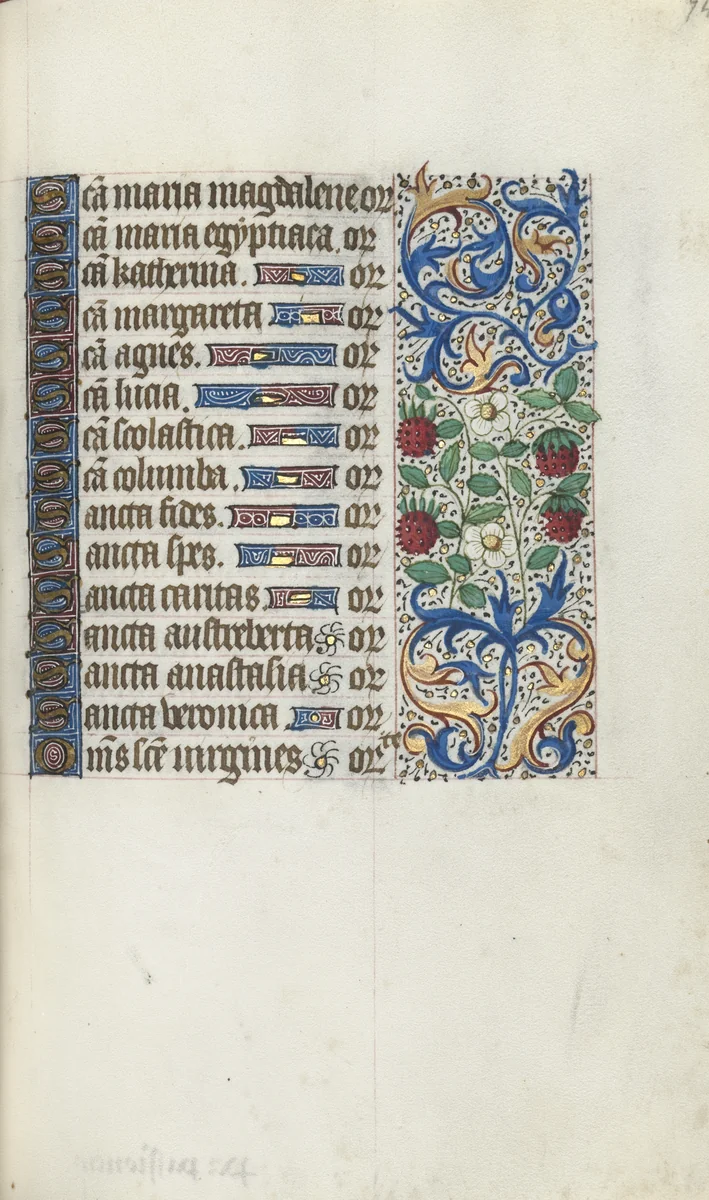 Scā maria magdalene or
Scā maria egyptiaca. or
Scā katherina. or
Scā margareta or
Scā agnes. or
Scā lucia. or
Scā scolastica. or
Scā columba. or
Sancta fides. or
Sancta spes. or
Sancta caritas. or
Sancta austreberta or
Sancta anastasia or
Sancta veronica or
Om̄s scē uirgines or